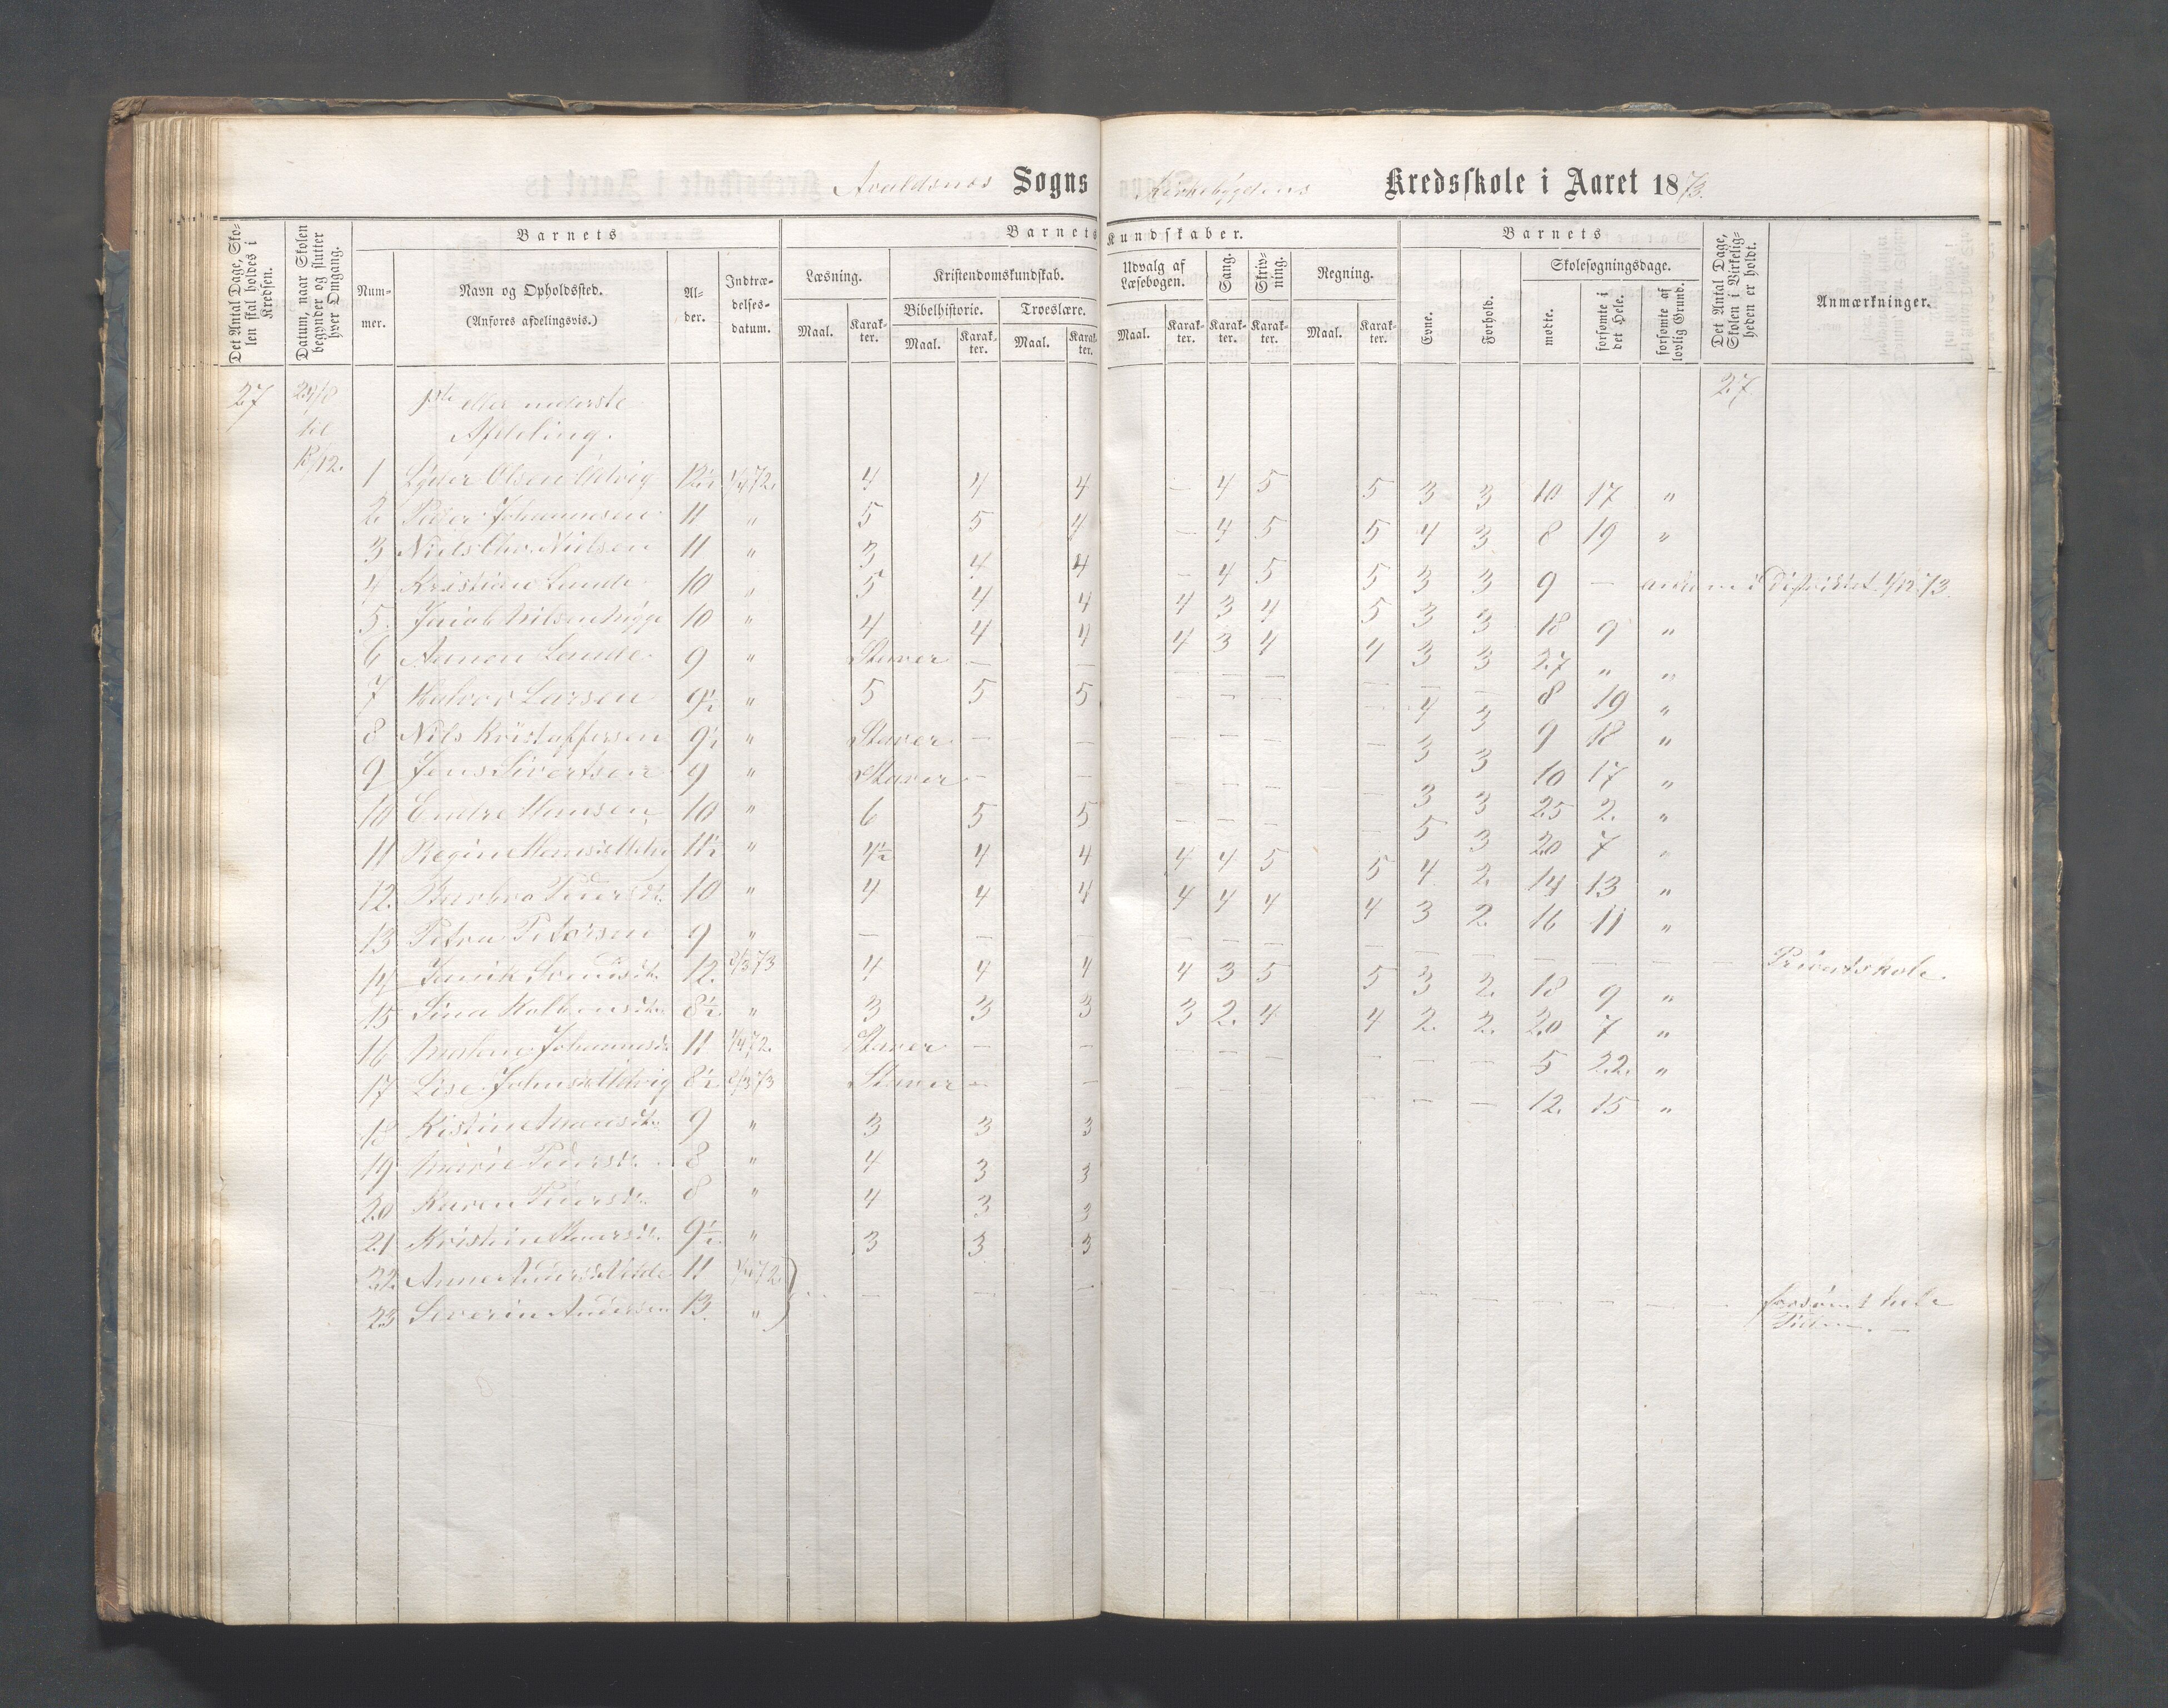 Avaldsnes Sogns Kirkebygdens Kredsskole i Aaret 1873.
Det Antal Dage, Skolen skal holdes i Kredsen.
Datum, naar Skolen begynder og slutter hver Omgang.
Barnets
Nummer.
Navn og Opholdssted.
(Anføres afdelingsvis.)
Alder.
Indtrædelsesdatum.
Barnets Kundskaber.
Læsning.
Maal. Karakter.
Kristendomskundskab.
Bibelhistorie. Troeslære.
Maal. Karakter. Maal. Karakter.
Udvalg af Læsebogen.
Maal. Karakter.
Sang. Karakter.
Skrivning. Karakter.
Regning.
Maal. Karakter.
Barnets
Evne.
Forhold.
Skolesøgningsdage.
mødte.
forsømte i det Hele.
forsømte af lovlig Grund.
Det Antal Dage, Skolen i Virkeligheden er holdt.
Anmærkninger.
27 1ste eller nederste 27.
til Afdeling.
1 Lyder Olsen Utvig 12½ 1/4 72. 4 4 4 — 4 5 5 3 3 10 17 "
2. Peder Johannesen 11 " 5 5 4 — 4 5 5 4 3 8 19 "
3 Niels Chr. Nielsen 11 " 3 4 4 — 4 5 5 3 3 9 — ankom i Distriktet 1/12 73.
4 Kristian Lande 10 " 5 4 4 4 3 4 5 3 3 18 9 "
5. Jacob Nilsen 10 " 4 4 4 4 3 4 4 3 3 27 " "
6 Lande 9 " Staver — — — — — — — — 8 19 "
7 Halvor Larsen 9½ " 5 5 5 — — — — 4 3 9 18 "
8 Nils Kristoffersen 9½ " Staver — — — — — — 3 3 10 17 "
9 Jens Sivertsen 9 " Staver — — — — — — 3 3 25 2. "
10 Endre Hansen 10 " 6 5 5 — — — — 5 3 20 7 "
11 Regine 11½ " 4½ 4 4 4 4 5 5 4 2. 14 13 "
12. Barbro Pedersdtr. 10 " 4 4 4 4 4 4 4 3 2. 16 11 "
13 Petra Petersen 9 " — — — — — — — — — — — — — Privatskole.
14 12. 2/3 73 4 4 4 4 3 5 5 3 2. 18 9 "
15 Sina 8½ " 3 3 3 3 2. 4 4 2. 2. 20 7 "
16 Johannesd. 11 1/4 72. Staver — — — — — — — — 5 22. "
17 Lise Utvig 8½ 2/3 73 Staver — — — — — — — 12. 15 "
18 9 " 3 3 3
19 Marie Pedersdr. 8 " 4 3 3
20 Karen Pedersdr. 8 " 4 3 3
21 Kristine 9½ " 3 3 3
22. Anne 11 1/4 72.
23 Severin Andersen 13. " — — — — — — — — — — — — — forsømt hele
Tiden. —